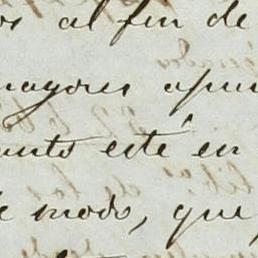 os al fin de
mayores apun
unto esté en
e modo, que